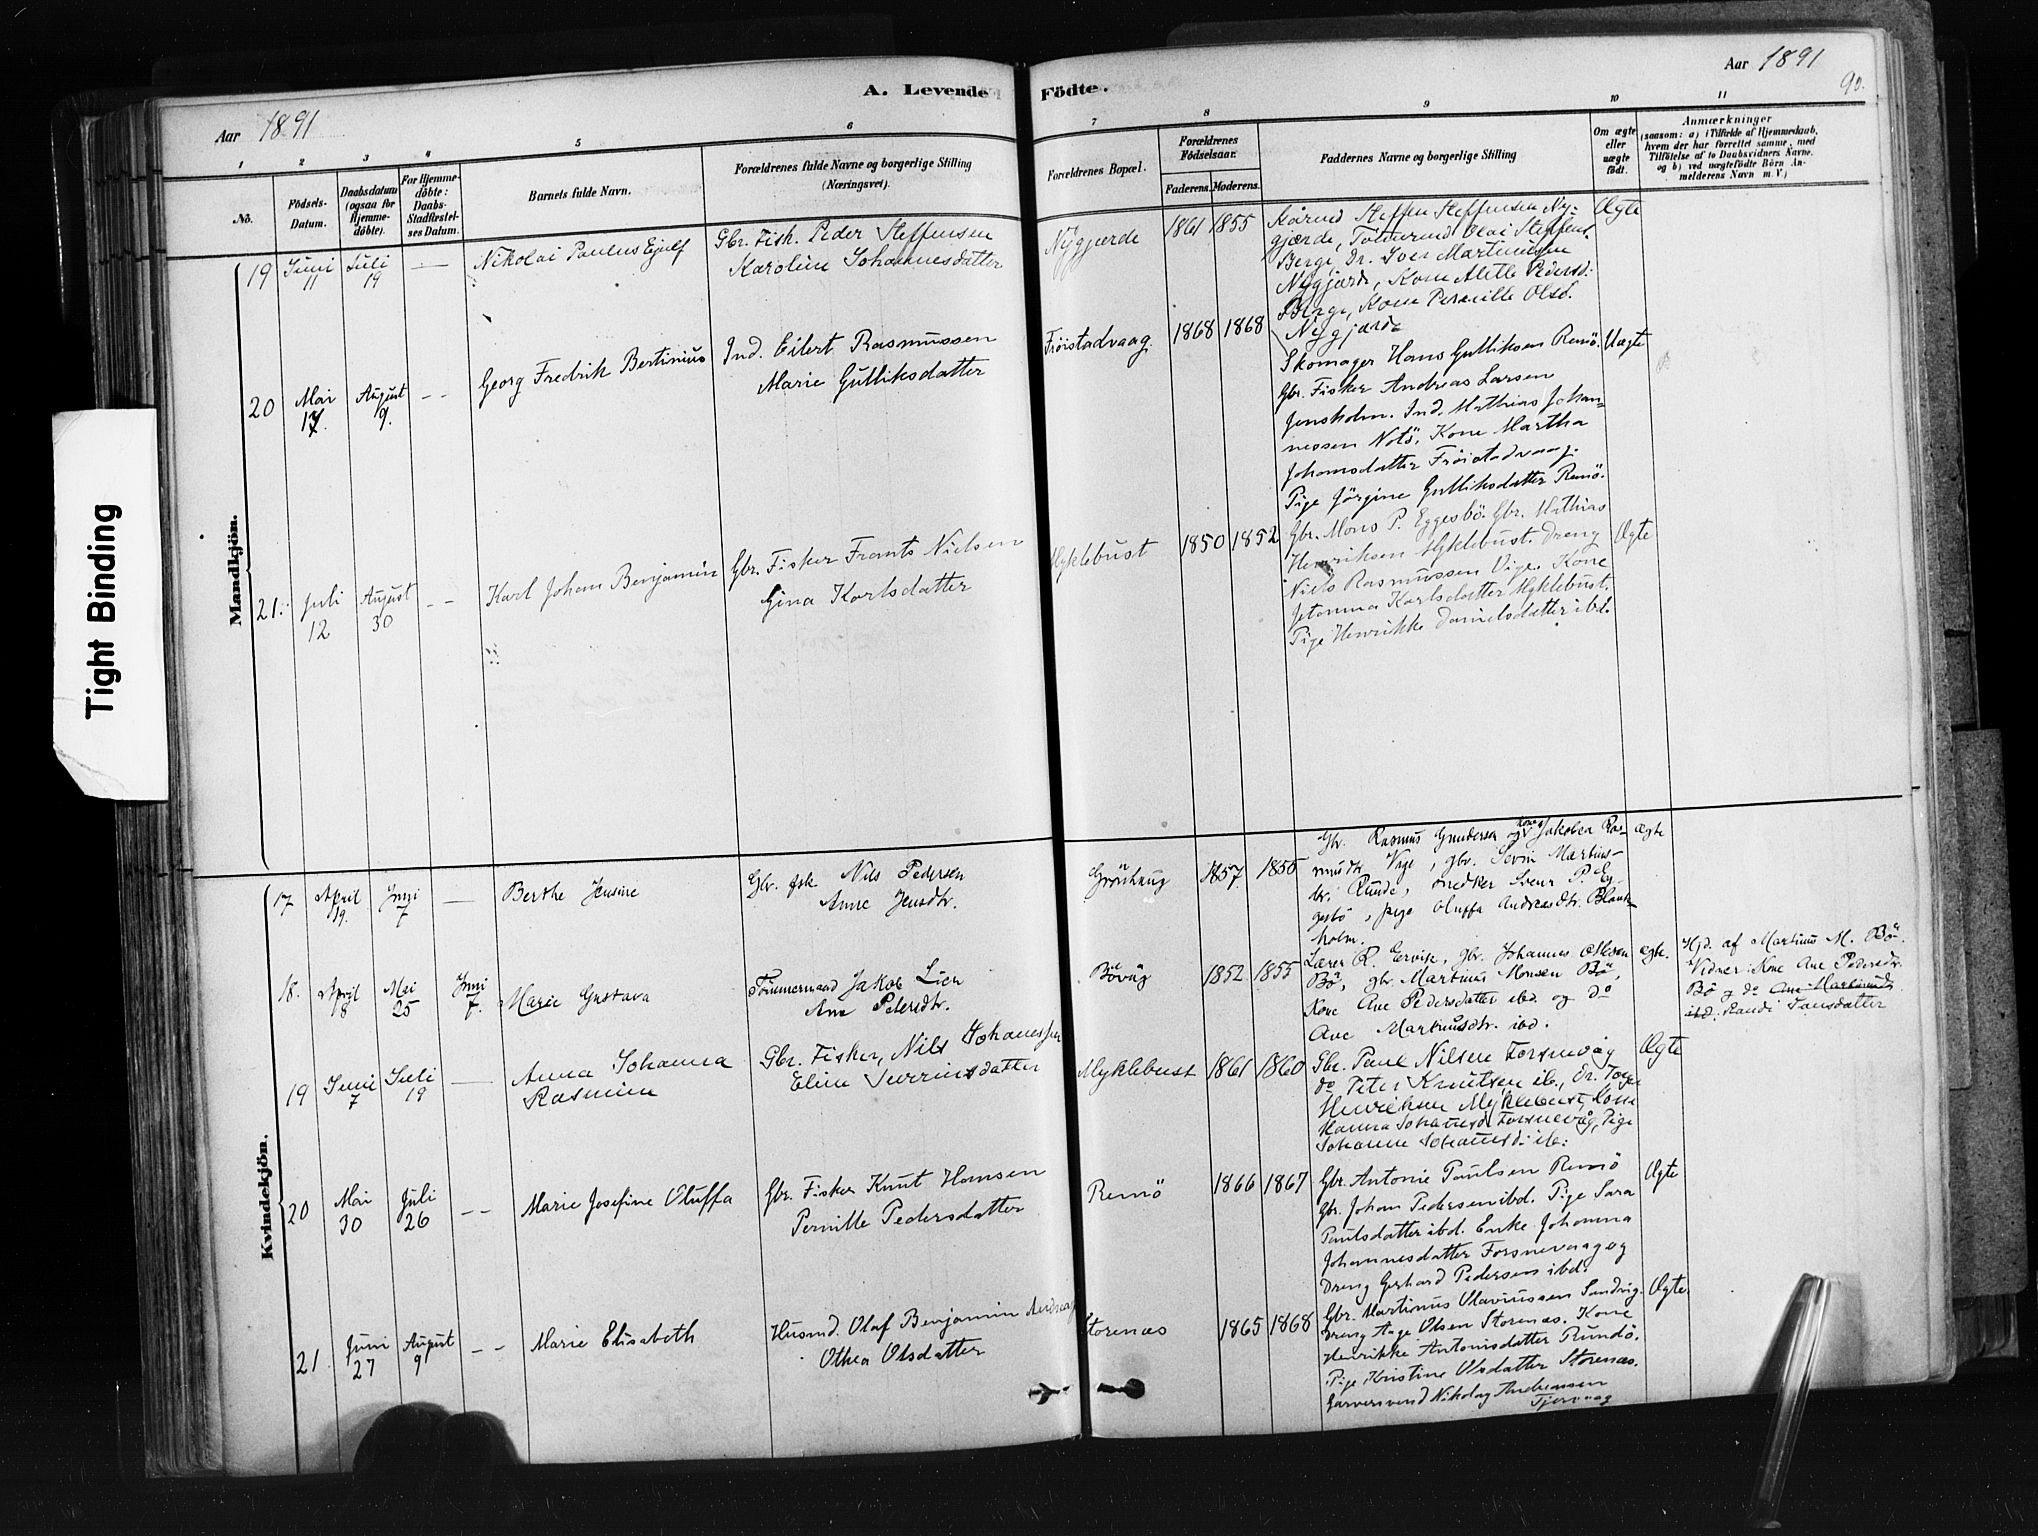 Tight Binding
A. Levende Födte.
Aar 1891
Aar 1891
90.
1 2 3 4 5 6 7 8 9 10 11
No.
Födsels-Datum.
Daabsdatum (ogsaa for Hjemme-döbte).
For Hjemme-döbte: Daabs-Stadfæstel-ses Datum.
Barnets fulde Navn.
Forældrenes fulde Navne og borgerlige Stilling (Næringsvei).
Forældrenes Bopæl.
Forældrenes Födselsaar.
Faderens. Moderens.
Faddernes Navne og borgerlige Stilling
Om ægte eller uægte födt.
Anmærkninger
(saasom: a) i Tilfælde af Hjemmedaab, hvem der har forrettet samme, med Tilföielse af to Daabsvidners Navne, og b) ved uægtefödte Börn Anmelderens Navn m. V.)
Mandkjön.
19 Juni 11 Juli 19 — Nikolai Paulus Ejulf
Gbr. Fisk. Peder Steffensen
Karoline Johannesdatter
Nygjærde 1861 1855
Kårmd Steffen Steffensen Ny-
gjærde, Olai Steffens.
Berge, Dr. Iver Martinussen
Nygjærde, Kone Alette Pedersd.
Berge, Kone Pernille Olsd.
Nygjærde
Ægte
20 Mai 17. August 9. -- Georg Fredrik Bertinius
Ind. Eilert Rasmussen
Marie Gulliksdatter
Frøistadvaag. 1868 1868
Skomager Hans Gulliksen Remö.
Gbr. Fisker Andreas Larsen
Jensholm. Ind. Mathias Johan-
nessen Notö. Kone Martha
Johansdatter Frøistadvaag.
Pige Jörgine Gulliksdatter Remö.
Uægte
21. Juli 12 August 30 -- Karl Johan Benjamin
Gbr. Fisker Frants Nielsen
Gina Karlsdatter
Myklebust 1850 1852
Gbr. Mons P. Eggesbö. Gbr. Mathias
Henriksen Myklebust. Dreng
Niels Rasmussen Vige. Kone
Jetanna Karlsdatter Myklebust.
Pige Henrikke Danielsdatter ibd.
Ægte
Kvindekjön.
17 April 19. Juni 7 — Berthe Jensine
Gbr. fsk Nils Pedersen
Anne Jensdtr.
Grönhaug 1857. 1850
Gbr. Rasmus Gundersen og kone Jakobea Ras-
musdtr. Vage, gbr. Sevrin Martins-
Runde, snedker Sveur P. Eg-
gesbö, pige Oluffa Andreasdtr. Blank-
holm.
ægte
18. April 18 Mai 25 Juni 7. Marie Gustava
Tömmermand Jakob Lien
Ane Petersdtr.
Bövåg 1852 1855
Lærer R. Ervik, gbr. Johannes Olsen
Bö, gbr. Martinus Monsen Bö,
Kone Ane Pedersdatter ibd. og do
Ane Martinusdtr. ibd.
ægte.
Hjd. af Martinus M. Bö.
Vidner: Kone Ane Pedersdtr.
Bö og do Ane Martinusd.
ibd. Randi Jansdatter
19 Juni 7 Juli 19 — Anna Johanna
Rasmine
Gbr. Fisker, Nils Johanessen
Eline Severinsdatter
Myklebust 1861 1860
Gbr. Paul Nilsen Forsnevåg
do Peter Knutsen ib., Dr.
Henriksen Myklebust, Kone
Hanna Johansd. Forsnevåg, Pige
Johanne Johansd. ib.
Ægte
20 Mai 30 Juli 26 -- Marie Josefine Oluffa
Gbr. Fisker Knut Hansen
Pernille Pedersdatter
Remö 1866 1867
Gbr. Antonie Paulsen Remö
Gbr. Johan Pedersen ibd. Pige Sara
Paulsdatter ibd. Enke Johanna
Johannesdatter Forsnevaag og
Dreng Gerhard Pedersen ibd.
Ægte
21. Juni 27 August 9 -- Marie Elisabeth
Husmd. Olaf Benjamin
Othea Olsdatter
Storenæs 1865 1868
Gbr. Martinus Olaviussen Sandvig.
Dreng Aage Olsen Storenæs. Kone
Henrikke Antonsdatter Rundö.
Pige Kristine Olsdatter Storenæs.
Garversvend Nikolay Andreassen
Tjervaag
Ægte.